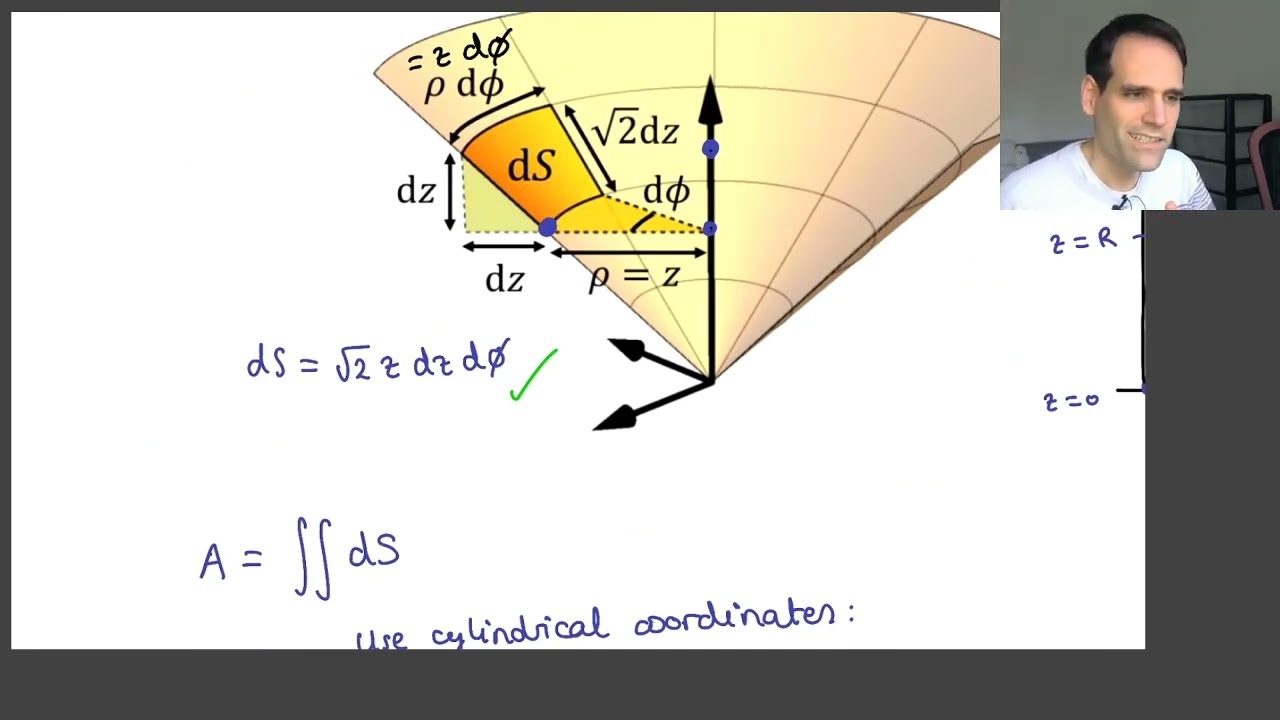 = z dϕ
ρ dϕ
√2dz
dS
dz
dϕ
dz
ρ = z
z = R
dS = √2 z dz dϕ
z = 0
A = ∬ dS
Use cylindrical coordinates: